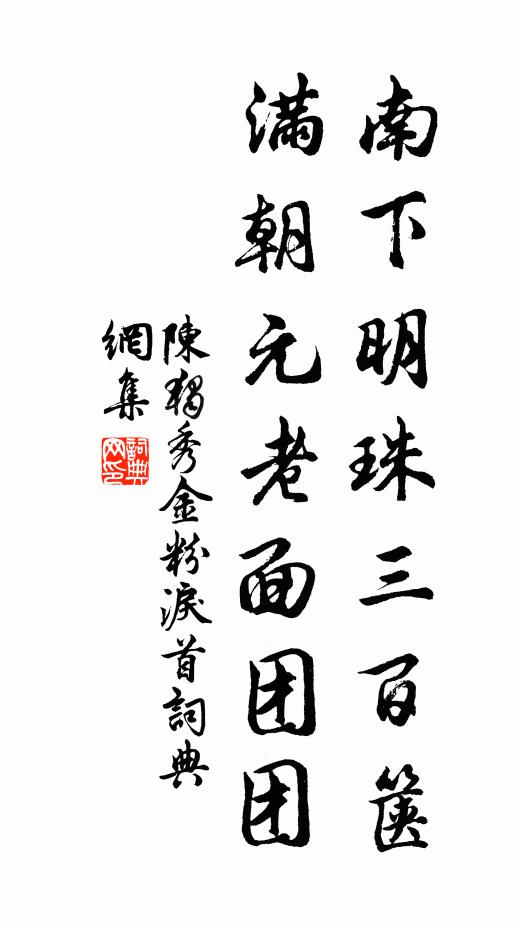 南下明珠三百篋
満朝元老面团团
陳獨秀金粉淚首詞典
網集
詞典网印